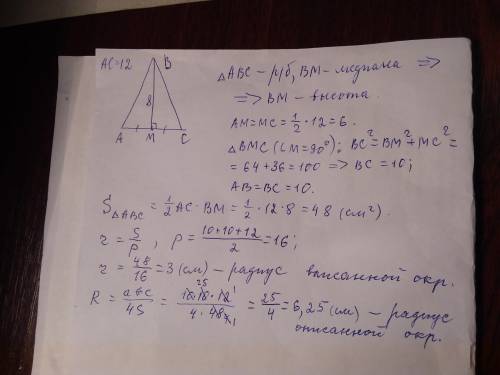 AC=12
B
8
A M C
△ABC – р/б, BM – медиана ⇒
⇒ BM – высота.
AM=MC=1/2·12=6.
△BMC (∠M=90°): BC²=BM²+MC²=
=64+36=100 ⇒ BC=10;
AB=BC=10.
S△ABC = 1/2 AC·BM = 1/2·12·8=48 (см²).
r = S/p, p = (10+10+12)/2 = 16;
r = 48/16 = 3 (см) – радиус вписанной окр.
R = abc/4S = (10·10·12)/(4·48) = 25/4 = 6,25 (см) – радиус
описанной окр.